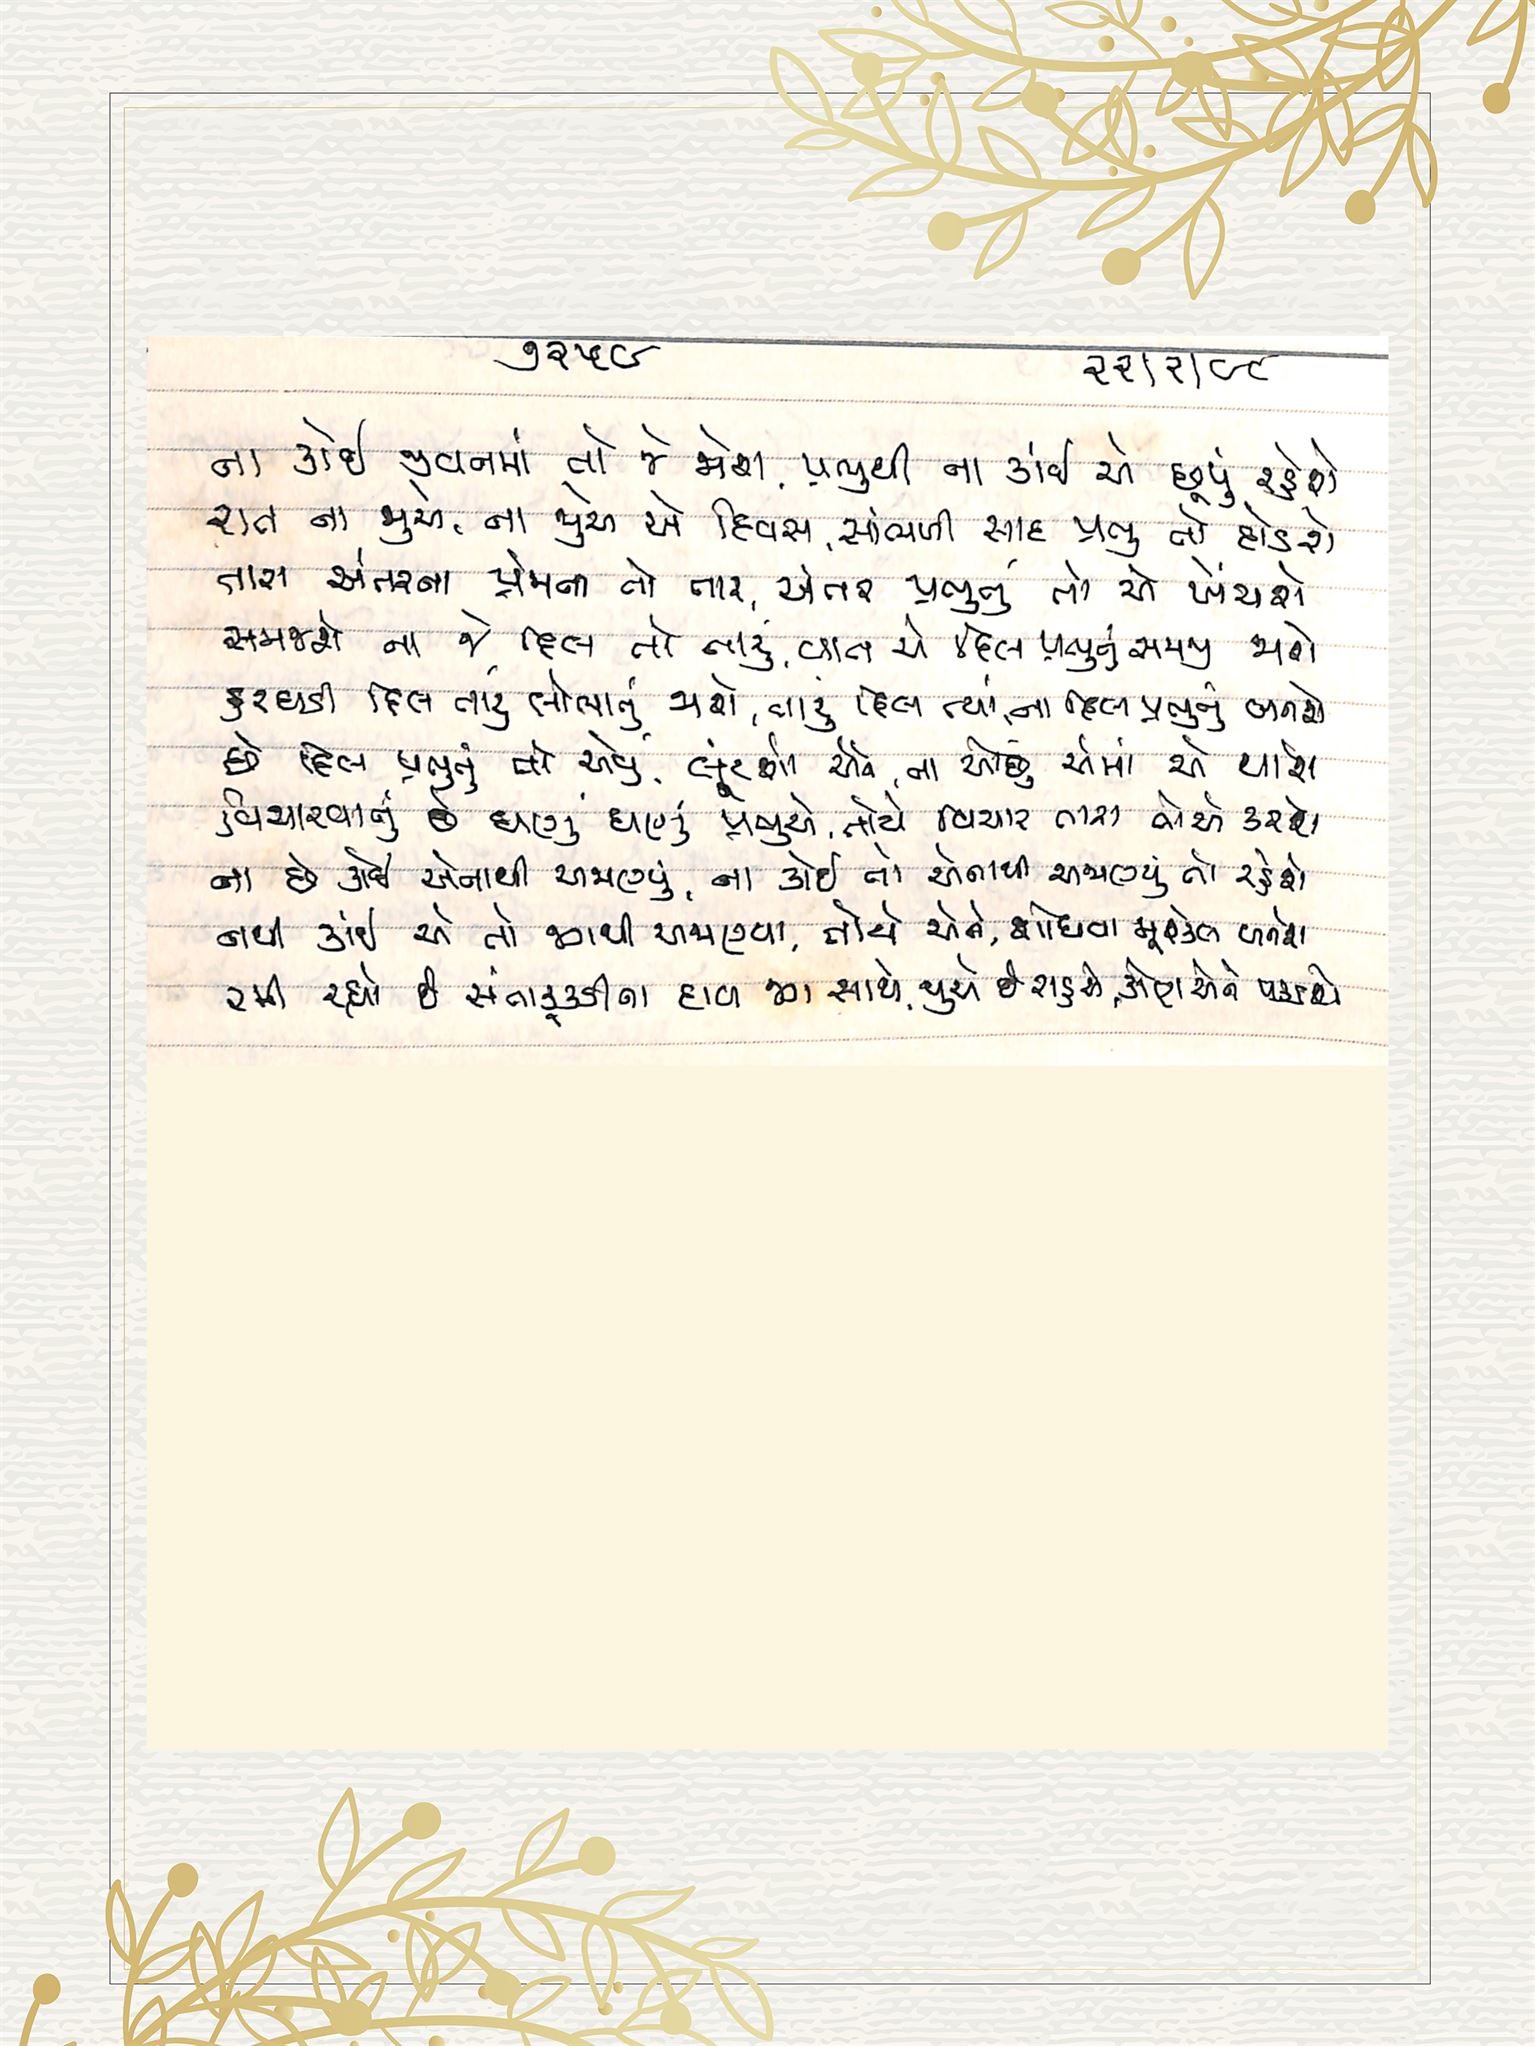 ૭૨૫૯ ૨૨/૨/૯૮
ના કોઈ જીવનમાં તો જે જોશે, પ્રભુથી ના કાંઈ એ છૂપું રહેશે
રાત ના જુએ, ના જુએ એ દિવસ, સાંભળી સાદ પ્રભુ તો દોડશે
તારા અંતરના પ્રેમના તો તાર, અંતર પ્રભુનું તો એ ખેંચશે
સમજશે ના જે દિલ તો તારું, વાત એ દિલ પ્રભુનું સમજી જાશે
હરઘડી દિલ તારું લોભાતું જાશે, તારું દિલ ત્યાં, ના દિલ પ્રભુનું બનશે
છે દિલ પ્રભુનું તો એવું, લૂંટશો એને, ના ઓછું એમાં એ થાશે
વિચારવાનું છે ઘણું ઘણું પ્રભુએ, તોયે વિચાર તારા તોએ કરશે
ના છે કોઈ એનાથી અજાણ્યું, ના કોઈ તો એનાથી અજાણ્યું તો રહેશે
નથી કાંઈ એ તો જગથી અજાણ્યા, તોયે એને, શોધવા મૂશ્કેલ બનશે
રમી રહ્યો છે સંતાકૂકડીના દાવ જગ સાથે, જુએ છે રાહ એ, કોણ એને પકડશે